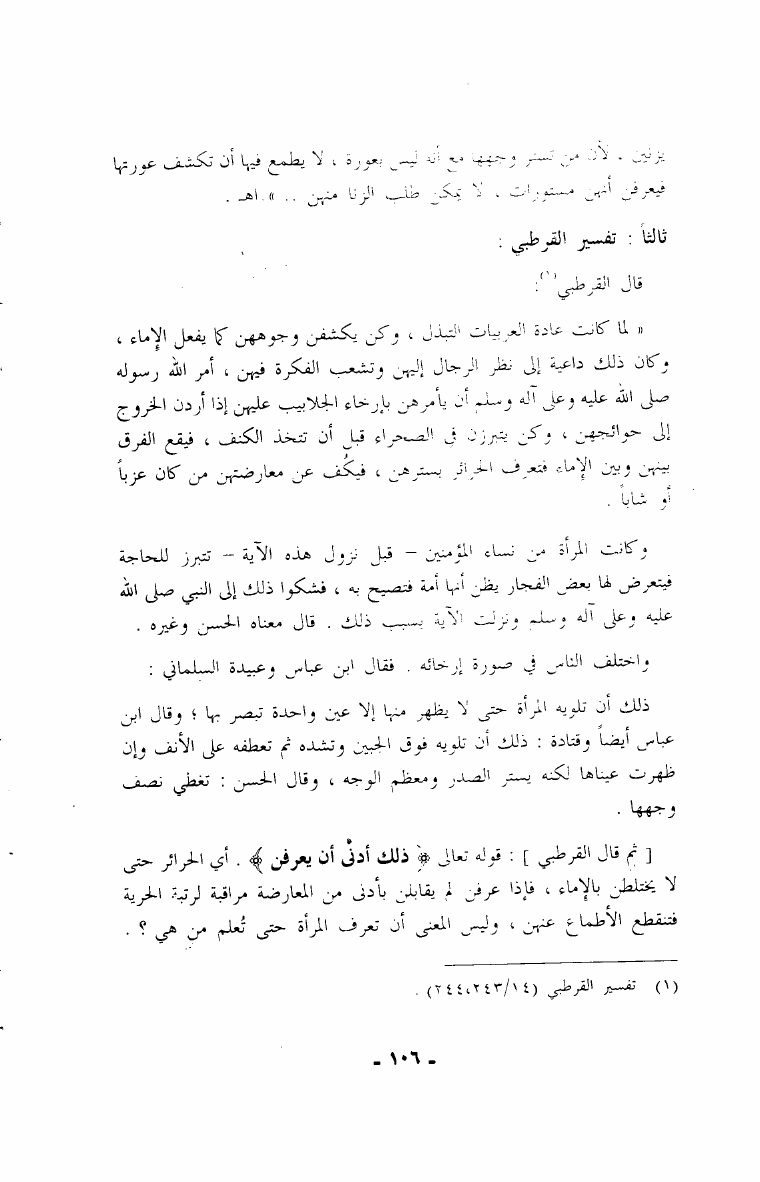 يزنين . لأن من تستر وجهها مع أنه ليس بعورة ، لا يطمع فيها أن تكشف عورتها
فيعرفن أنهن مستورات ، لا يمكن طلب الزنا منهن .. » . اهـ .
ثالثاً : تفسير القرطبي :
قال القرطبي(١):
« لما كانت عادة العربيات التبذل ، وكن يكشفن وجوههن كما يفعل الإماء ،
وكان ذلك داعية إلى نظر الرجال إليهن وتشعب الفكرة فيهن ، أمر الله رسوله
صلى الله عليه وعلى آله وسلم أن يأمرهن بإرخاء الجلابيب عليهن إذا أردن الخروج
إلى حوائجهن ، وكن يتبرزن في الصحراء قبل أن تتخذ الكنف ، فيقع الفرق
بينهن وبين الإماء فتعرف الحرائر بسترهن ، فيكُف عن معارضتهن من كان عزباً
أو شاباً .
وكانت المرأة من نساء المؤمنين – قبل نزول هذه الآية – تتبرز للحاجة
فيتعرض لها بعض الفجار يظن أنها أمة فتصيح به ، فشكوا ذلك إلى النبي صلى الله
عليه وعلى آله وسلم ونزلت الآية بسبب ذلك . قال معناه الحسن وغيره .
واختلف الناس في صورة إرخائه . فقال ابن عباس وعبيدة السلماني :
ذلك أن تلويه المرأة حتى لا يظهر منها إلا عين واحدة تبصر بها ؛ وقال ابن
عباس أيضاً وقتادة : ذلك أن تلويه فوق الجبين وتشده ثم تعطفه على الأنف وإن
ظهرت عيناها لكنه يستر الصدر ومعظم الوجه ، وقال الحسن : تغطي نصف
وجهها .
[ ثم قال القرطبي ] : قوله تعالى ﴿ ذلك أدنى أن يعرفن ﴾ . أي الحرائر حتى
لا يختلطن بالإماء ، فإذا عرفن لم يقابلن بأدنى من المعارضة مراقبة لرتبة الحرية
فتنقطع الأطماع عنهن ، وليس المعنى أن تعرف المرأة حتى تُعلم من هي ؟ .
(١) تفسير القرطبي (٢٤٤،٢٤٣/١٤) .
- ١٠٦ -